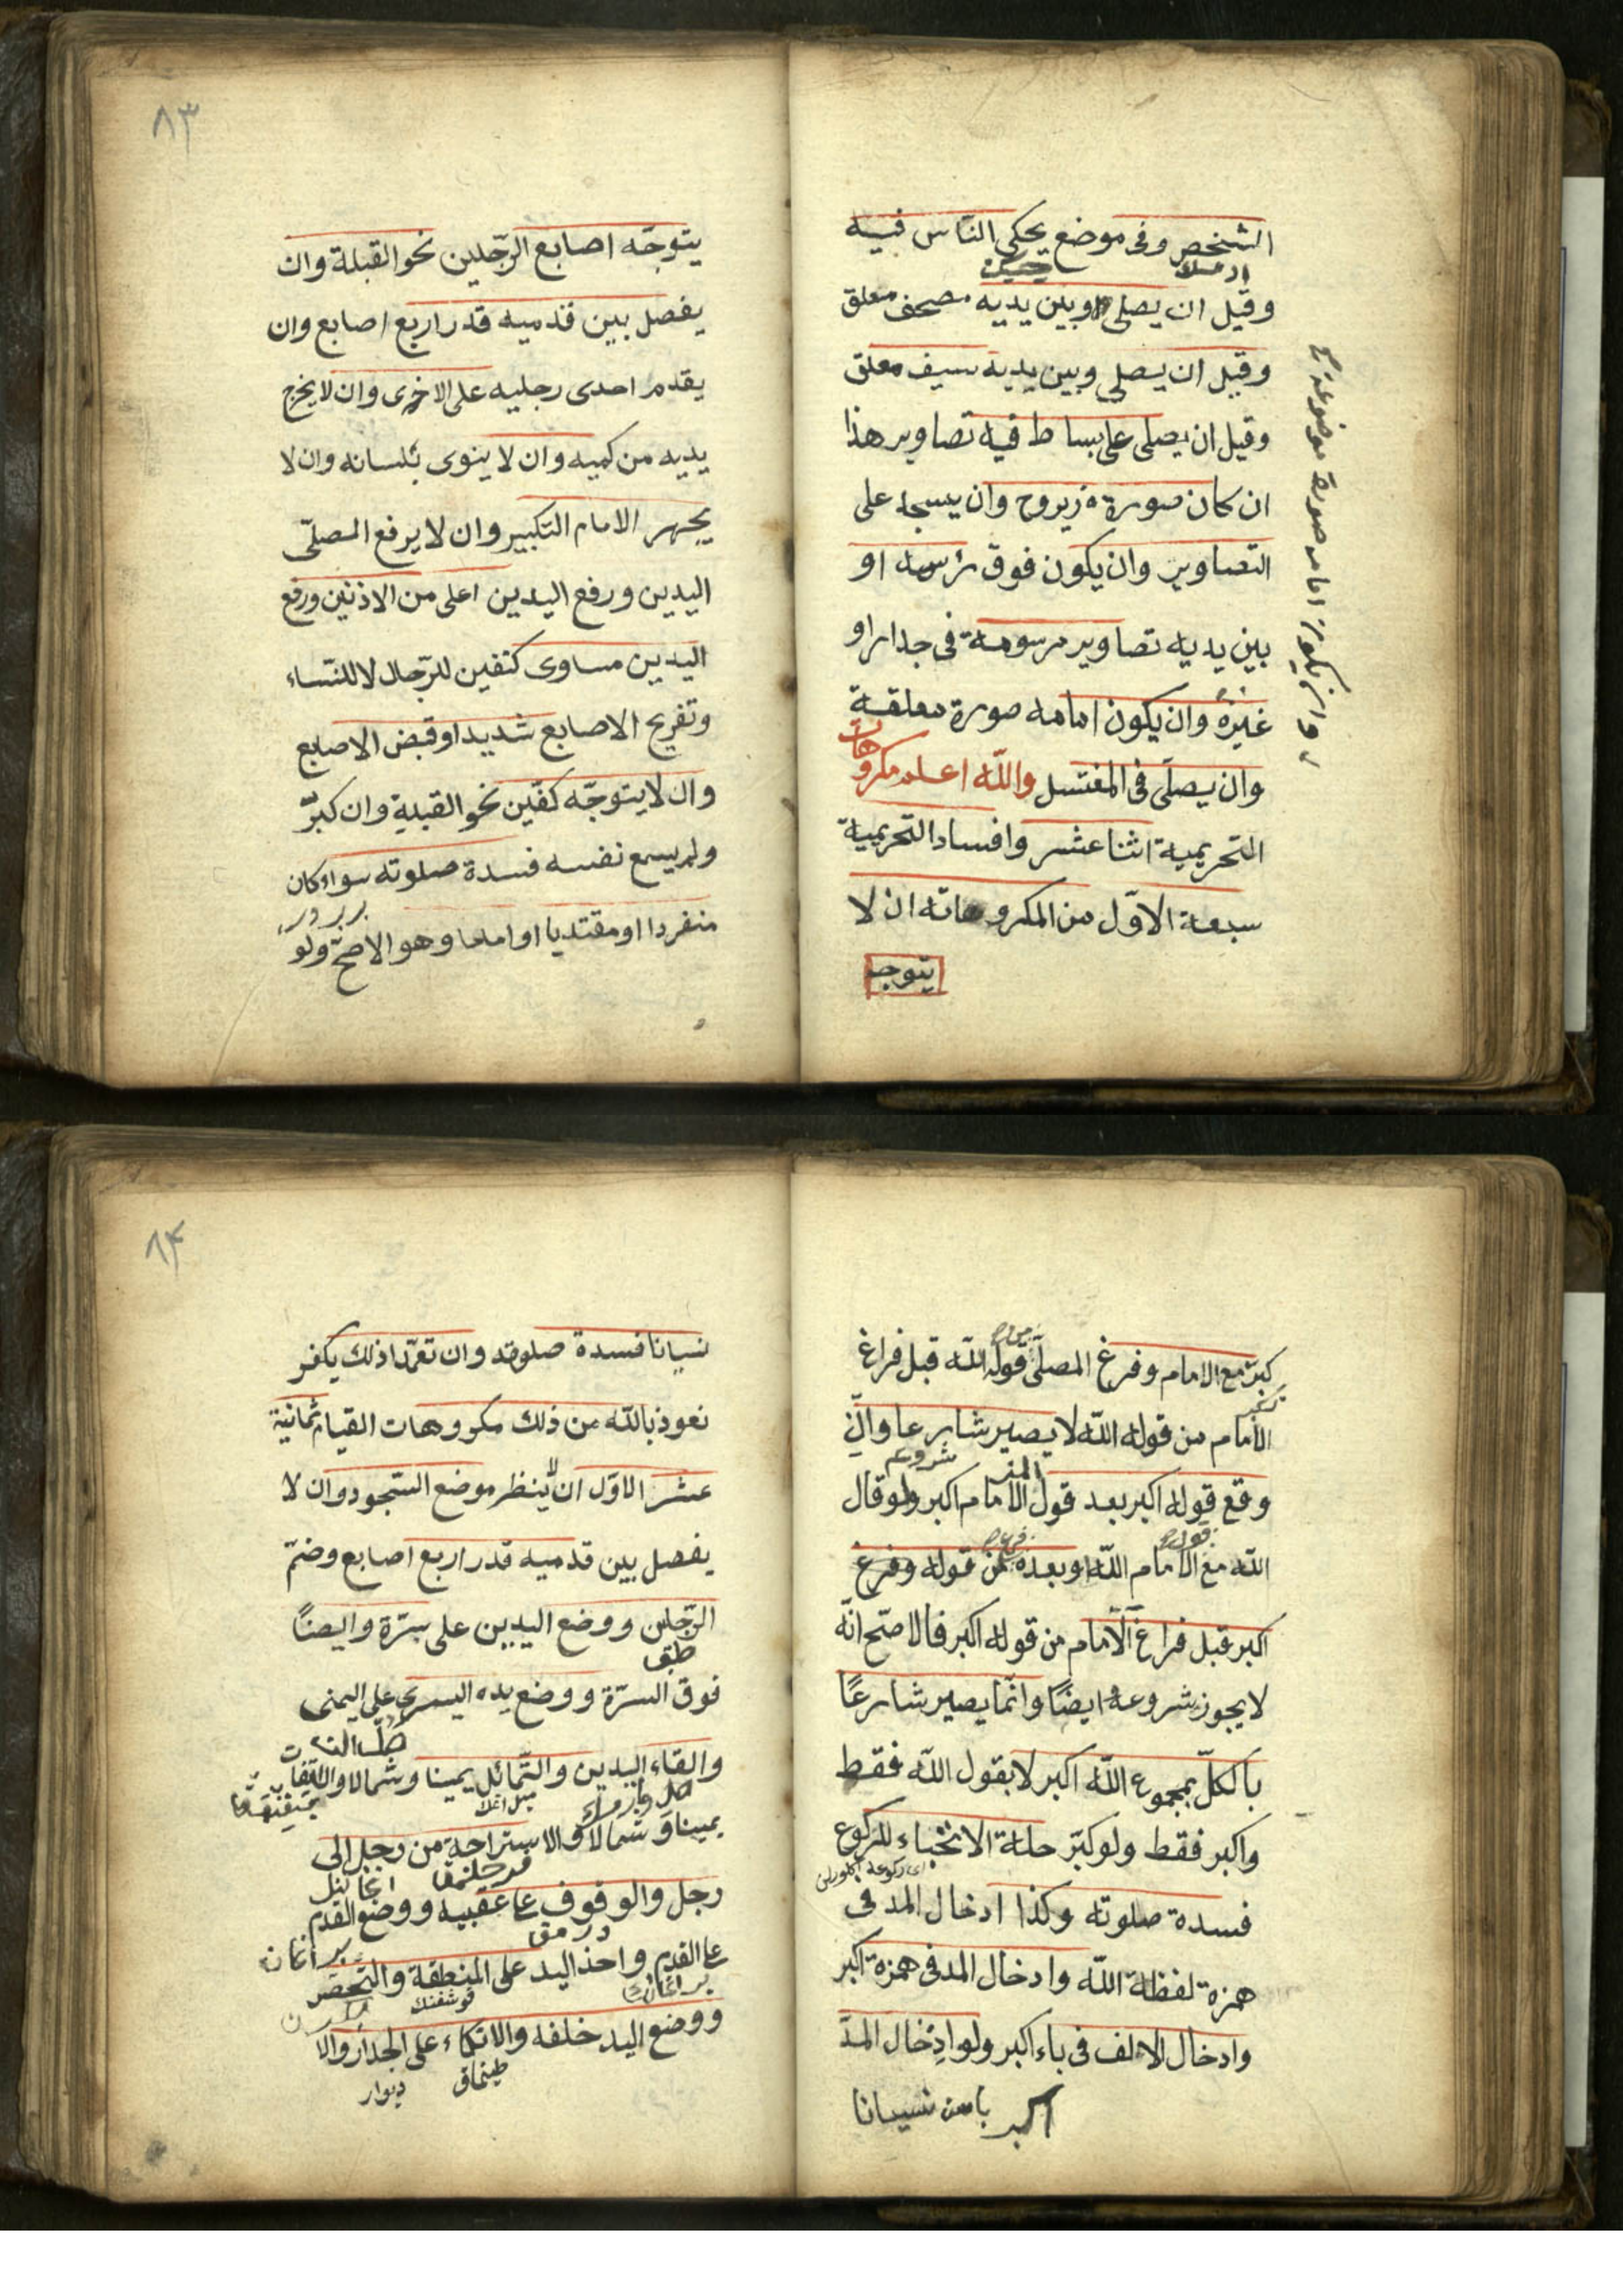 الشخص وفى موضع يحكى الناس فيه
وقيل ان يصلى وبين يديه مصحف معلق
وقيل ان يصلى وبين يديه سيف معلق
وقيل ان يصلى على بساط فيه تصاوير هذا
ان كان صورة ذيروح وان يسجد على
التصاوير وان يكون فوق رئسه او
بين يديه تصاوير مرسومة فى جدار او
غيره وان يكون امامه صورة معلقة
وان يصلّى فى المغتسل والله اعلم مكروهات
التحريمية اثنا عشر وافساد التحريمية
سبعة الاوّل من المكروهاته ان لا
يتوجه
وان يكون امامه صورة موضوعة
٨٣
يتوجّه اصابع الرّجلين نحو القبلة وان
يفصل بين قدميه قدر اربع اصابع وان
يقدم احدى رجليه على الاخرى وان لا يخرج
يديه من كميه وان لا ينوى بلسانه وان لا
يجهر الامام التكبير وان لا يرفع المصلّى
اليدين ورفع اليدين اعلى من الاذنين ورفع
اليدين مساوى كتفين للرّجال لا للنّساء
وتفريج الاصابع شديدا وقبض الاصابع
وان لا يتوجّه كفّين نحو القبلة وان كبّر
ولم يسمع نفسه فسدة صلوته سواء كان
منفردا او مقتديا او اماما وهو الاصحّ ولو
كبّر مع الامام وفرغ المصلّى قوله الله قبل فراغ
الامام من قوله الله لا يصير شارعا وان
وقع قوله اكبر بعد قول الامام اكبر ولو قال
الله مع الامام الله او بعده من قوله وفرغ
اكبر قبل فراغ الامام من قوله اكبر فالاصّح انّه
لا يجوز شروعه ايضًا وانّما يصير شارعًا
بالكلّ بمجموع الله اكبر لا بقول الله فقط
واكبر فقط ولو كبّر حلة الانحناء للركوع
فسدة صلوته وكذا ادخال المد فى
همزة لفظة الله وادخال المد فى همزة اكبر
وادخال الالف فى باء اكبر ولو ادخال المدّ
نسيانا
٨٤
نسيانا فسدة صلوته وان تعمّدا ذلك يكفر
نعوذ بالله من ذلك مكروهات القيام ثمانية
عشر الاوّل ان لا ينظر موضع السّجود وان لا
يفصل بين قدميه قدر اربع اصابع وضمّ
الرّجلين ووضع اليدين على سرّة وايضًا
فوق السرّة ووضع يده اليسرى على اليمنى
والقاء اليدين والتّمائل يمينا وشمالا والالتفات
يمينا وشمالا والاستراحة من رجل الى
رجل والوقوف على عقبيه ووضع القدم
على القدم واخذ اليد على المنطقة والتخصّر
قوشغنك
ووضع اليد خلفه والاتكاء على الجدار والا
طينماق
ديوار